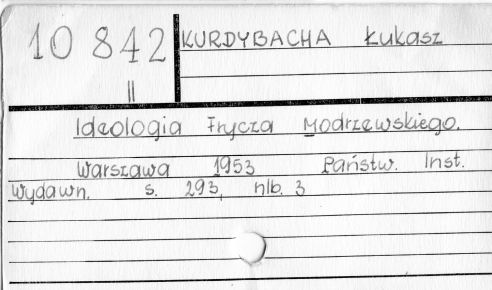 10 842 KURDYBACHA Łukasz
II
Ideologia Frycza Modrzewskiego.
Warszawa 1953 Państw. Inst.
Wydawn. s. 293, nlb. 3